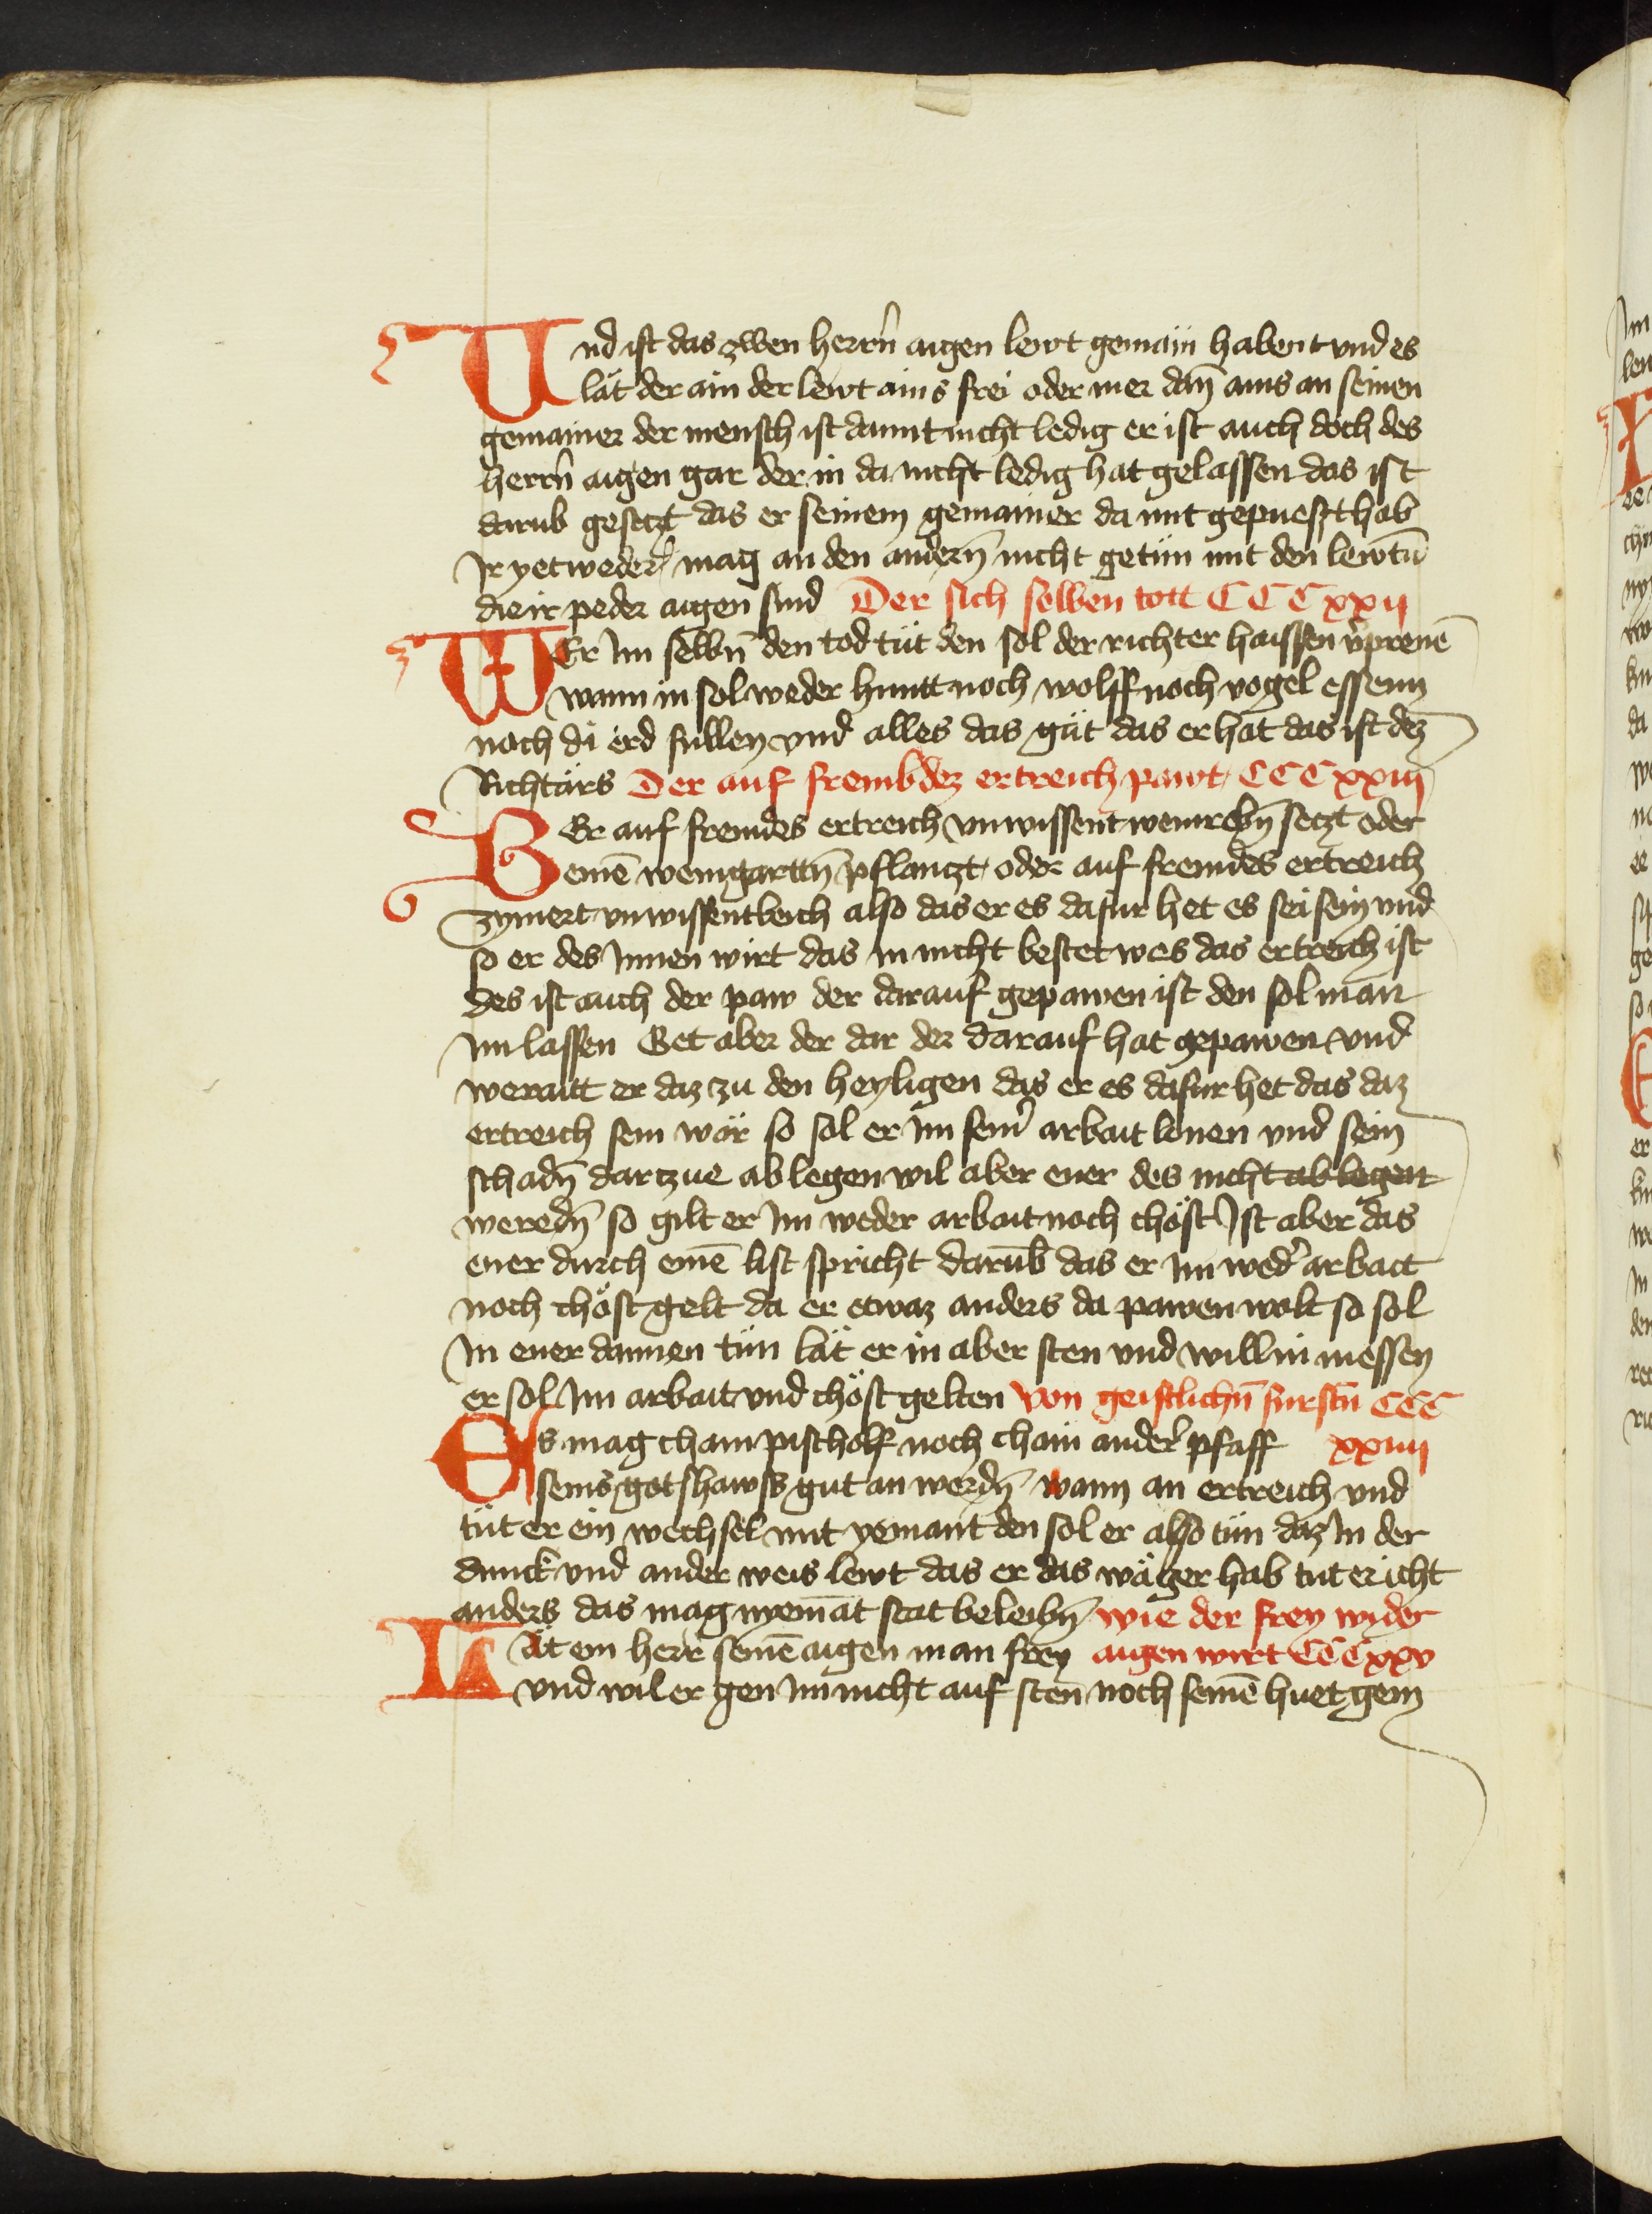 Und ist das zwen herrn̄ aigen lewt gemain habent vnd es
lät der ain der lewt ains frei oder mer dan̄ ains an seinen
gemainer der mensch ist damit nicht ledig er ist auch doch des
herrn̄ aigen gar der in da nicht ledig hat gelassen das ist
darub gesetzt das er seinem gemainer da mit gepuest hab
Ir yetweder mag an den andern̄ nicht getün mit den lewtn̄
die ir peder aigen sind Der sich selben tott CCC xxij
WEr Im selbn̄ den tod tüt den sol der richter haissen v̓prenē
wann in sol weder huntt noch wolff noch vogel essenn
noch di erd fullen vnd alles das güt das er hat das ist dez
Richtärs Der auf frembdez ertreich pawt CCC xxiij
BEr auf fremdes ertreich vnwissent weinrebn̄ setzt oder
einē weingarttn̄ pflantzt oder auf fremdes ertreich
zymert vnwissentleich also das er es dafur het es sei sein vnd
so er des Innen wirt das in nicht bestet wes das ertreich ist
des ist auch der paw der darauf gepawen ist den sol man
im lassen Get aber der dar der darauf hat gepawen vnd
weraitt er daz zu den heyligen das er es dafur het das daz
ertreich sein wär so sol er im sein̓ arbait lonen vnd sein
schadn̄ dartzue ablegen wil aber ener des nicht ablegen
weredn̄ so gilt er Im weder arbait noch chöst Ist aber das
ener durch einē list spricht darūb das er im wed̓ arbait
noch chöst gelt da er etwaz anders da pawen wolt so sol
In ener dannen tün lät er in aber sten vnd will in niessen
er sol Im arbait vnd chöst gelten Von geistlichn̄ furstn̄ CCC
Es mag chain pischolf noch chain ander̓ pfaff xxiiij
seins gotshawss gut an werdn̄ wann an ertreich vnd
tüt er ein wechsel mit yemant den sol er also tün daz In der
dunck vnd ander weis lewt das er das wäger hab tut er icht
anders das mag nyemāt stät beleibn̄ wie der frey wider
LÄt ein herr seinē aigen man frey aigen wirt CCC xxv
vnd wil er gen im nicht auf sten noch seinē huet gein